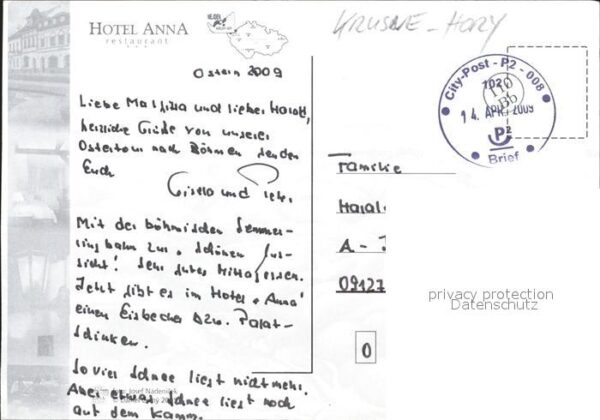 HOTEL ANNA
restaurant
KRUSNE-HORY
Ostern 2009
Liebe und lieber
herzliche Grüße von unserer
Ostertour nach Böhmen senden
Euch
Gisela und
Mit der böhmischen Semmer-
ingbahn zur " schönen Aus-
sicht! Sehr gutes Mittagessen.
Jetzt gibt es im Hotel "Anna"
einen Eisbecher bzw. Palat-
schinken.
So viel Schnee liegt nicht mehr.
Aber etwas Schnee liegt noch
auf dem Kamm.
City-Post - P2 - 008
102
14. APR. 2009
P2
Brief
Familie
Haral
A -
09127
0
privacy protection
Datenschutz